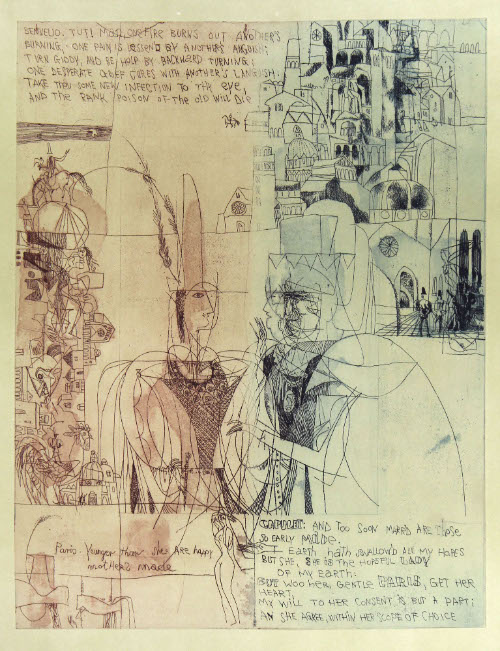 BENVOLIO. TUT! MAN, ONE FIRE BURNS OUT ANOTHER'S
BURNING, ONE PAIN IS LESSEN'D BY ANOTHER'S ANGUISH;
TURN GIDDY, AND BE HOLP BY BACKWARD TURNING;
ONE DESPERATE GRIEF CURES WITH ANOTHER'S LANGUISH.
TAKE THOU SOME NEW INFECTION TO THY EYE,
AND THE RANK POISON OF THE OLD WILL DIE
Paris Younger than she are happy
mothers made
CAPULET: AND TOO SOON MARR'D ARE those
SO EARLY MADE.
EARTH hATH SWALLOW'D ALL MY HOPES
BUT SHE, SHE IS THE HOPEFUL LADY
OF MY EARTH:
BUT WOO HER, GENTLE PARIS, GET HER
HEART,
MY WILL TO HER CONSENT IS BUT A PART;
AN SHE AGREE, WITHIN HER SCOPE OF CHOICE